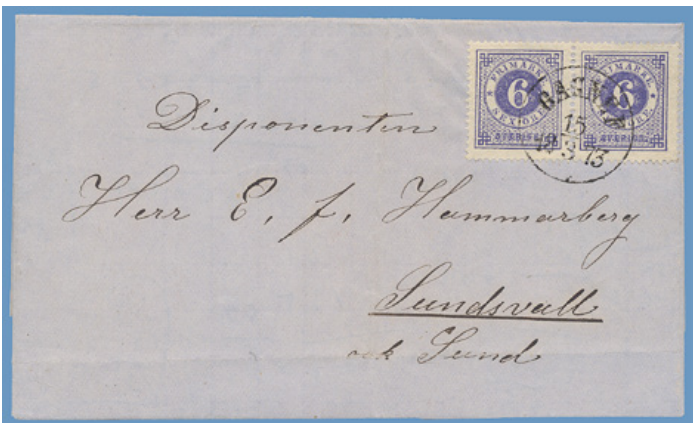 FRIMÄRKE
6
SEX ÖRE
SVERIGE
FRIMÄRKE
6
SVERIGE
15
12 3 73
Disponenten
Herr E. f. Hammarberg
Sundsvall
och Sund